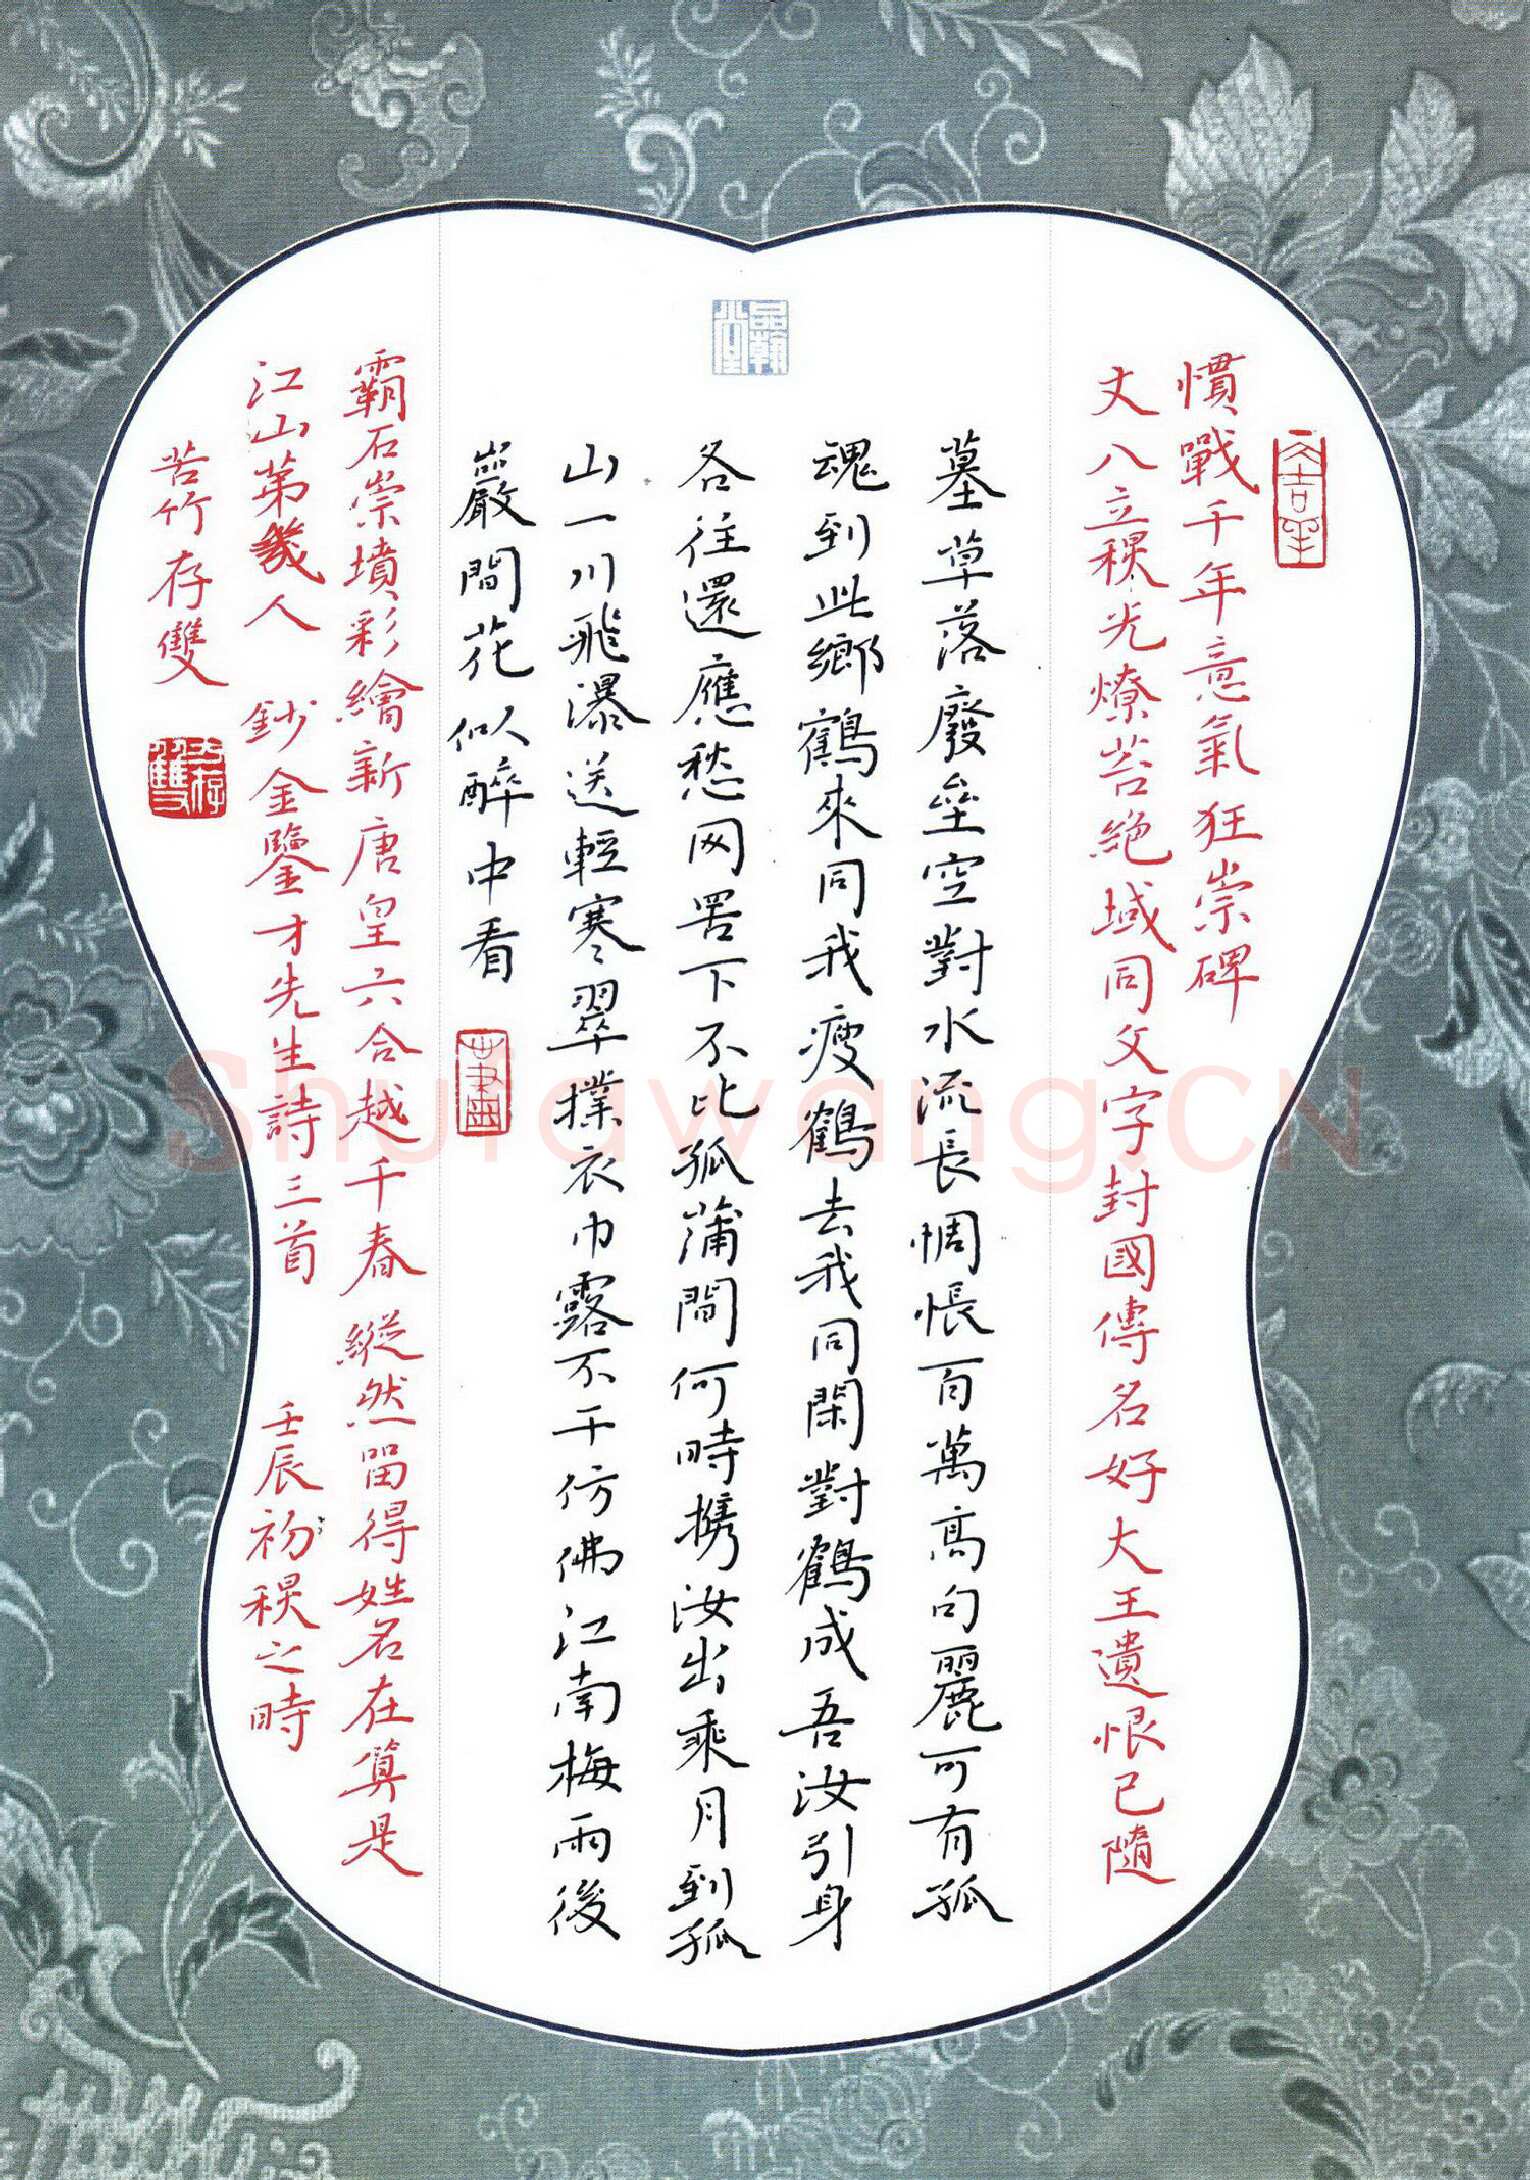 慣戰千年意氣狂崇碑
丈八立穠光燎苔絶域同父字封國傳名好大王遺恨已隨
墓草落廢壘空對水流長惆悵百萬高句麗可有孤
魂到此鄉鶴來同我瘦鶴去我同閑對鶴成吾汝引身
各往還應愁网罟下不比孤蒲間何時携汝出乘月到孤
山一川飛瀑送輕寒翠撲衣巾露不干仿佛江南梅雨後
巖間花似醉中看
霸石崇墳彩繪新唐皇六合越千春縱然留得姓名在算是
江山第幾人 鈔金鑒才先生詩三首 壬辰初穠之時
苦竹存雙
品翰堂
Shufawang.CN